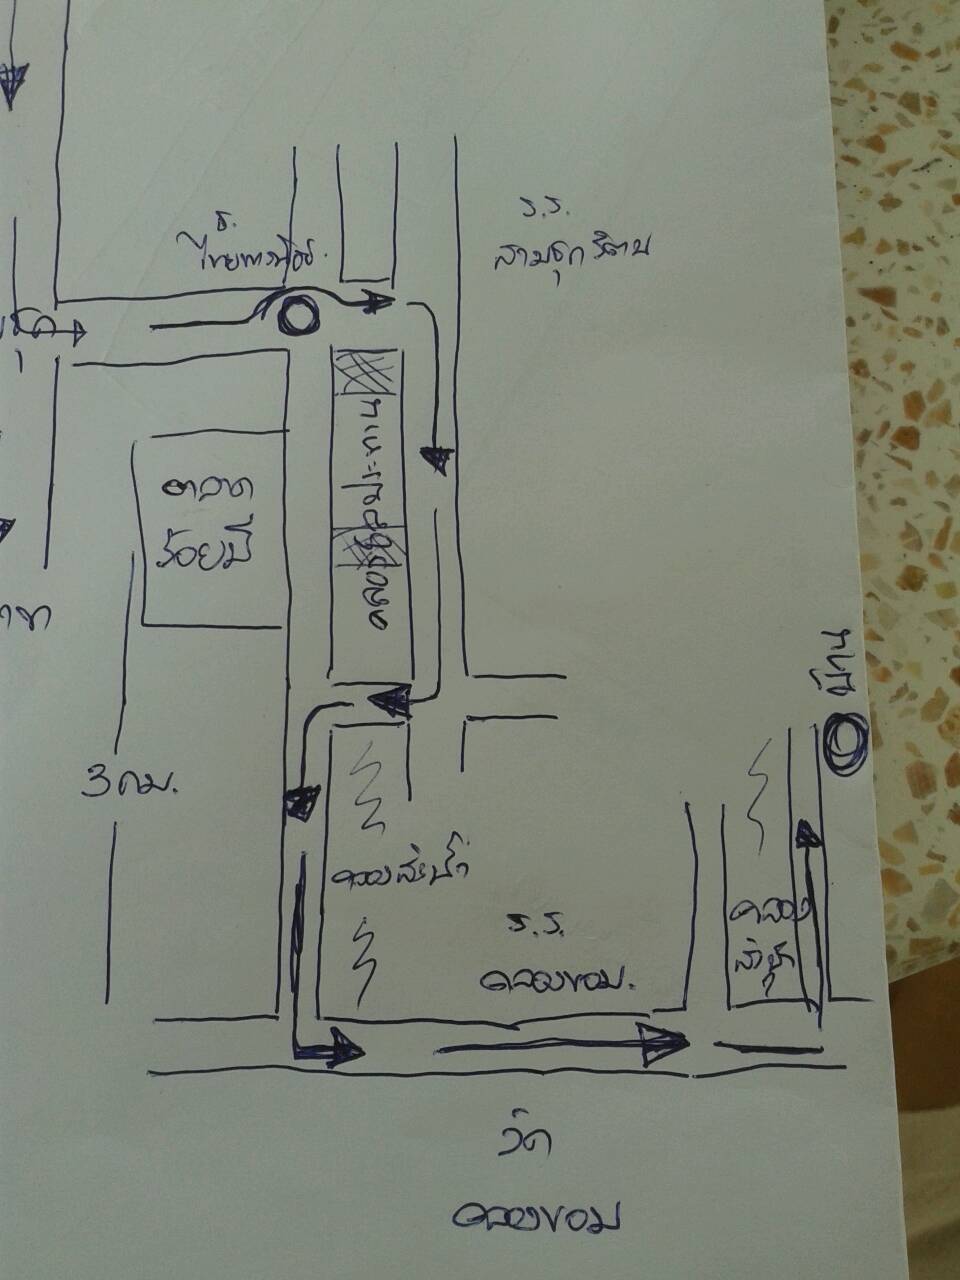 ธ.
ไทยพาณิชย์
ร.ร.
สามชุกรัตน
ตลาด
ร้อยปี
คลองชลประทาน
บ้าน
3 กม.
คลองส่งน้ำ
คลอง
ส่งน้ำ
ร.ร.
คลองขอม.
วัด
คลองขอม